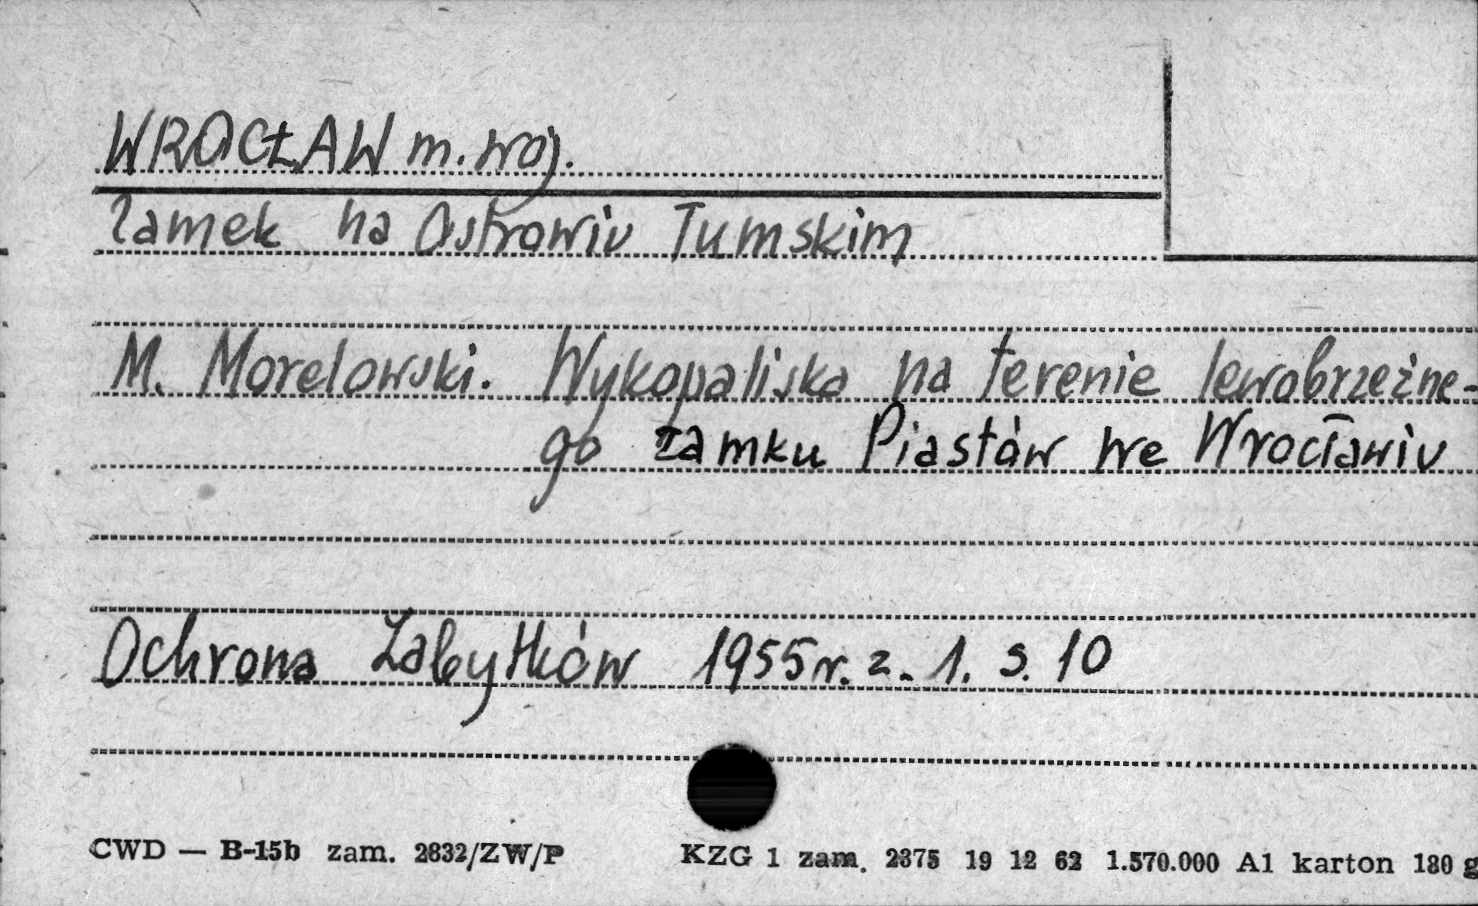 WROCŁAW m. woj.
Zamek na Ostrowiu Tumskim
M. Morelowski. Wykopaliska na terenie lewobrzeżne-
go zamku Piastów we Wrocławiu
Ochrona Zabytków 1955 r. z. 1. s. 10
CWD — B-15b zam. 2832/ZW/P KZG 1 zam. 2375 19 12 62 1.570.000 A1 karton 180 g